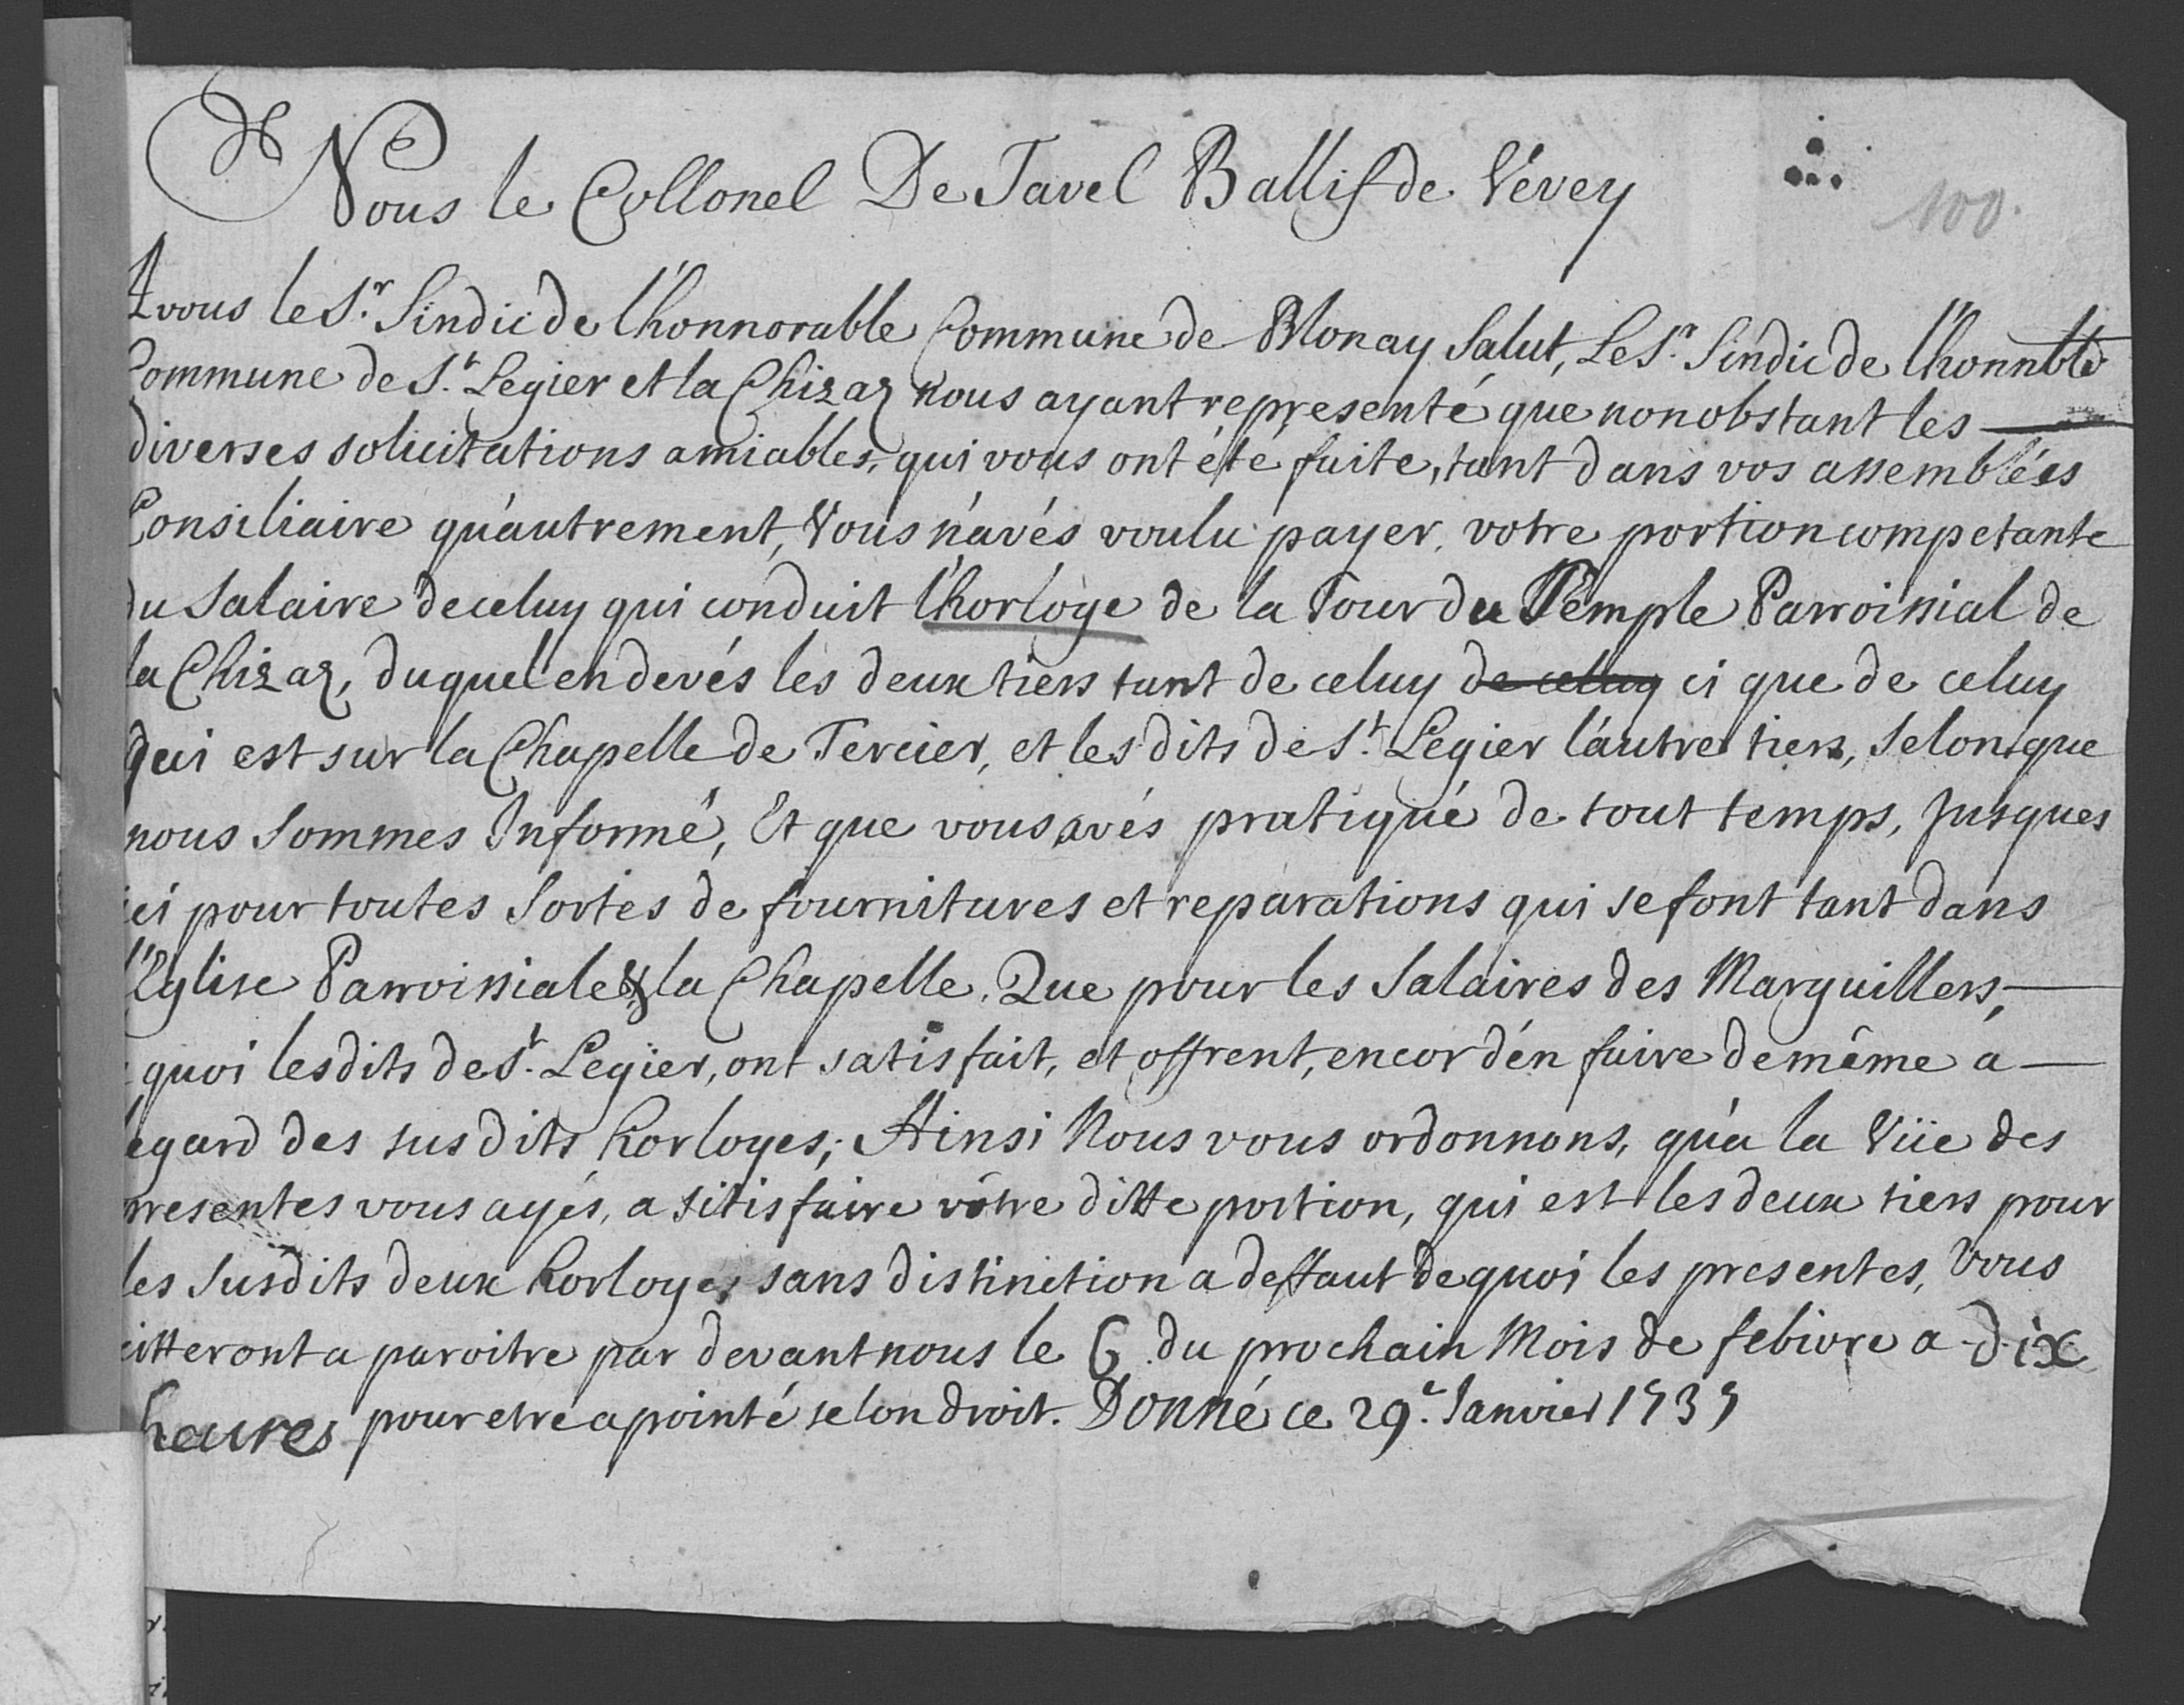 100.
Nous le Collonel De Tavel Ballif de Vévey
A vous le Sr. Sindic de l'honnorable Commune de Blonay Salut, Le Sr. Sindic de l'honnble
Commune de St. Legier et la Chizaz nous ayant representé que nonobstant les
diverses solicitations amiables, qui vous ont été faite, tant dans vos assemblées
Consiliaire qu'autrement, Vous n'avés voulu payer votre portion competante
du Salaire de celuy qui conduit l'horloge de la Tour du Temple Parroissial de
la Chizaz, duquel en devés les deux tiers tant de celuy de celuy ci que de celuy
qui est sur la Chapelle de Tercier, et les dits de St. Legier l'autre tiers, Selon que
nous Sommes Informé, Et que vous avés pratiqué de tout temps, Jusques
ici pour toutes Sortes de fournitures et reparations qui se font tant dans
l'Eglise Parroissiale & la Chapelle. Que pour les Salaires des Marguillers,
quoi les dits de St. Legier, ont satisfait, et offrent, encor d'én faire de même a
legard des susdits horloges; Ainsi Nous vous ordonnons, qu'a la Vüe des
presentes vous ayés, a sitisfaire vôtre ditte portion, qui est les deux tiers pour
les Susdits deux horloges sans distinction a deffaut de quoi les presentes, Vous
citteront a paroitre par devant nous le 6 du prochain Mois de febivre a dix
heures pour etre apointé selon droit. Donné ce 29e. Janvier 1737